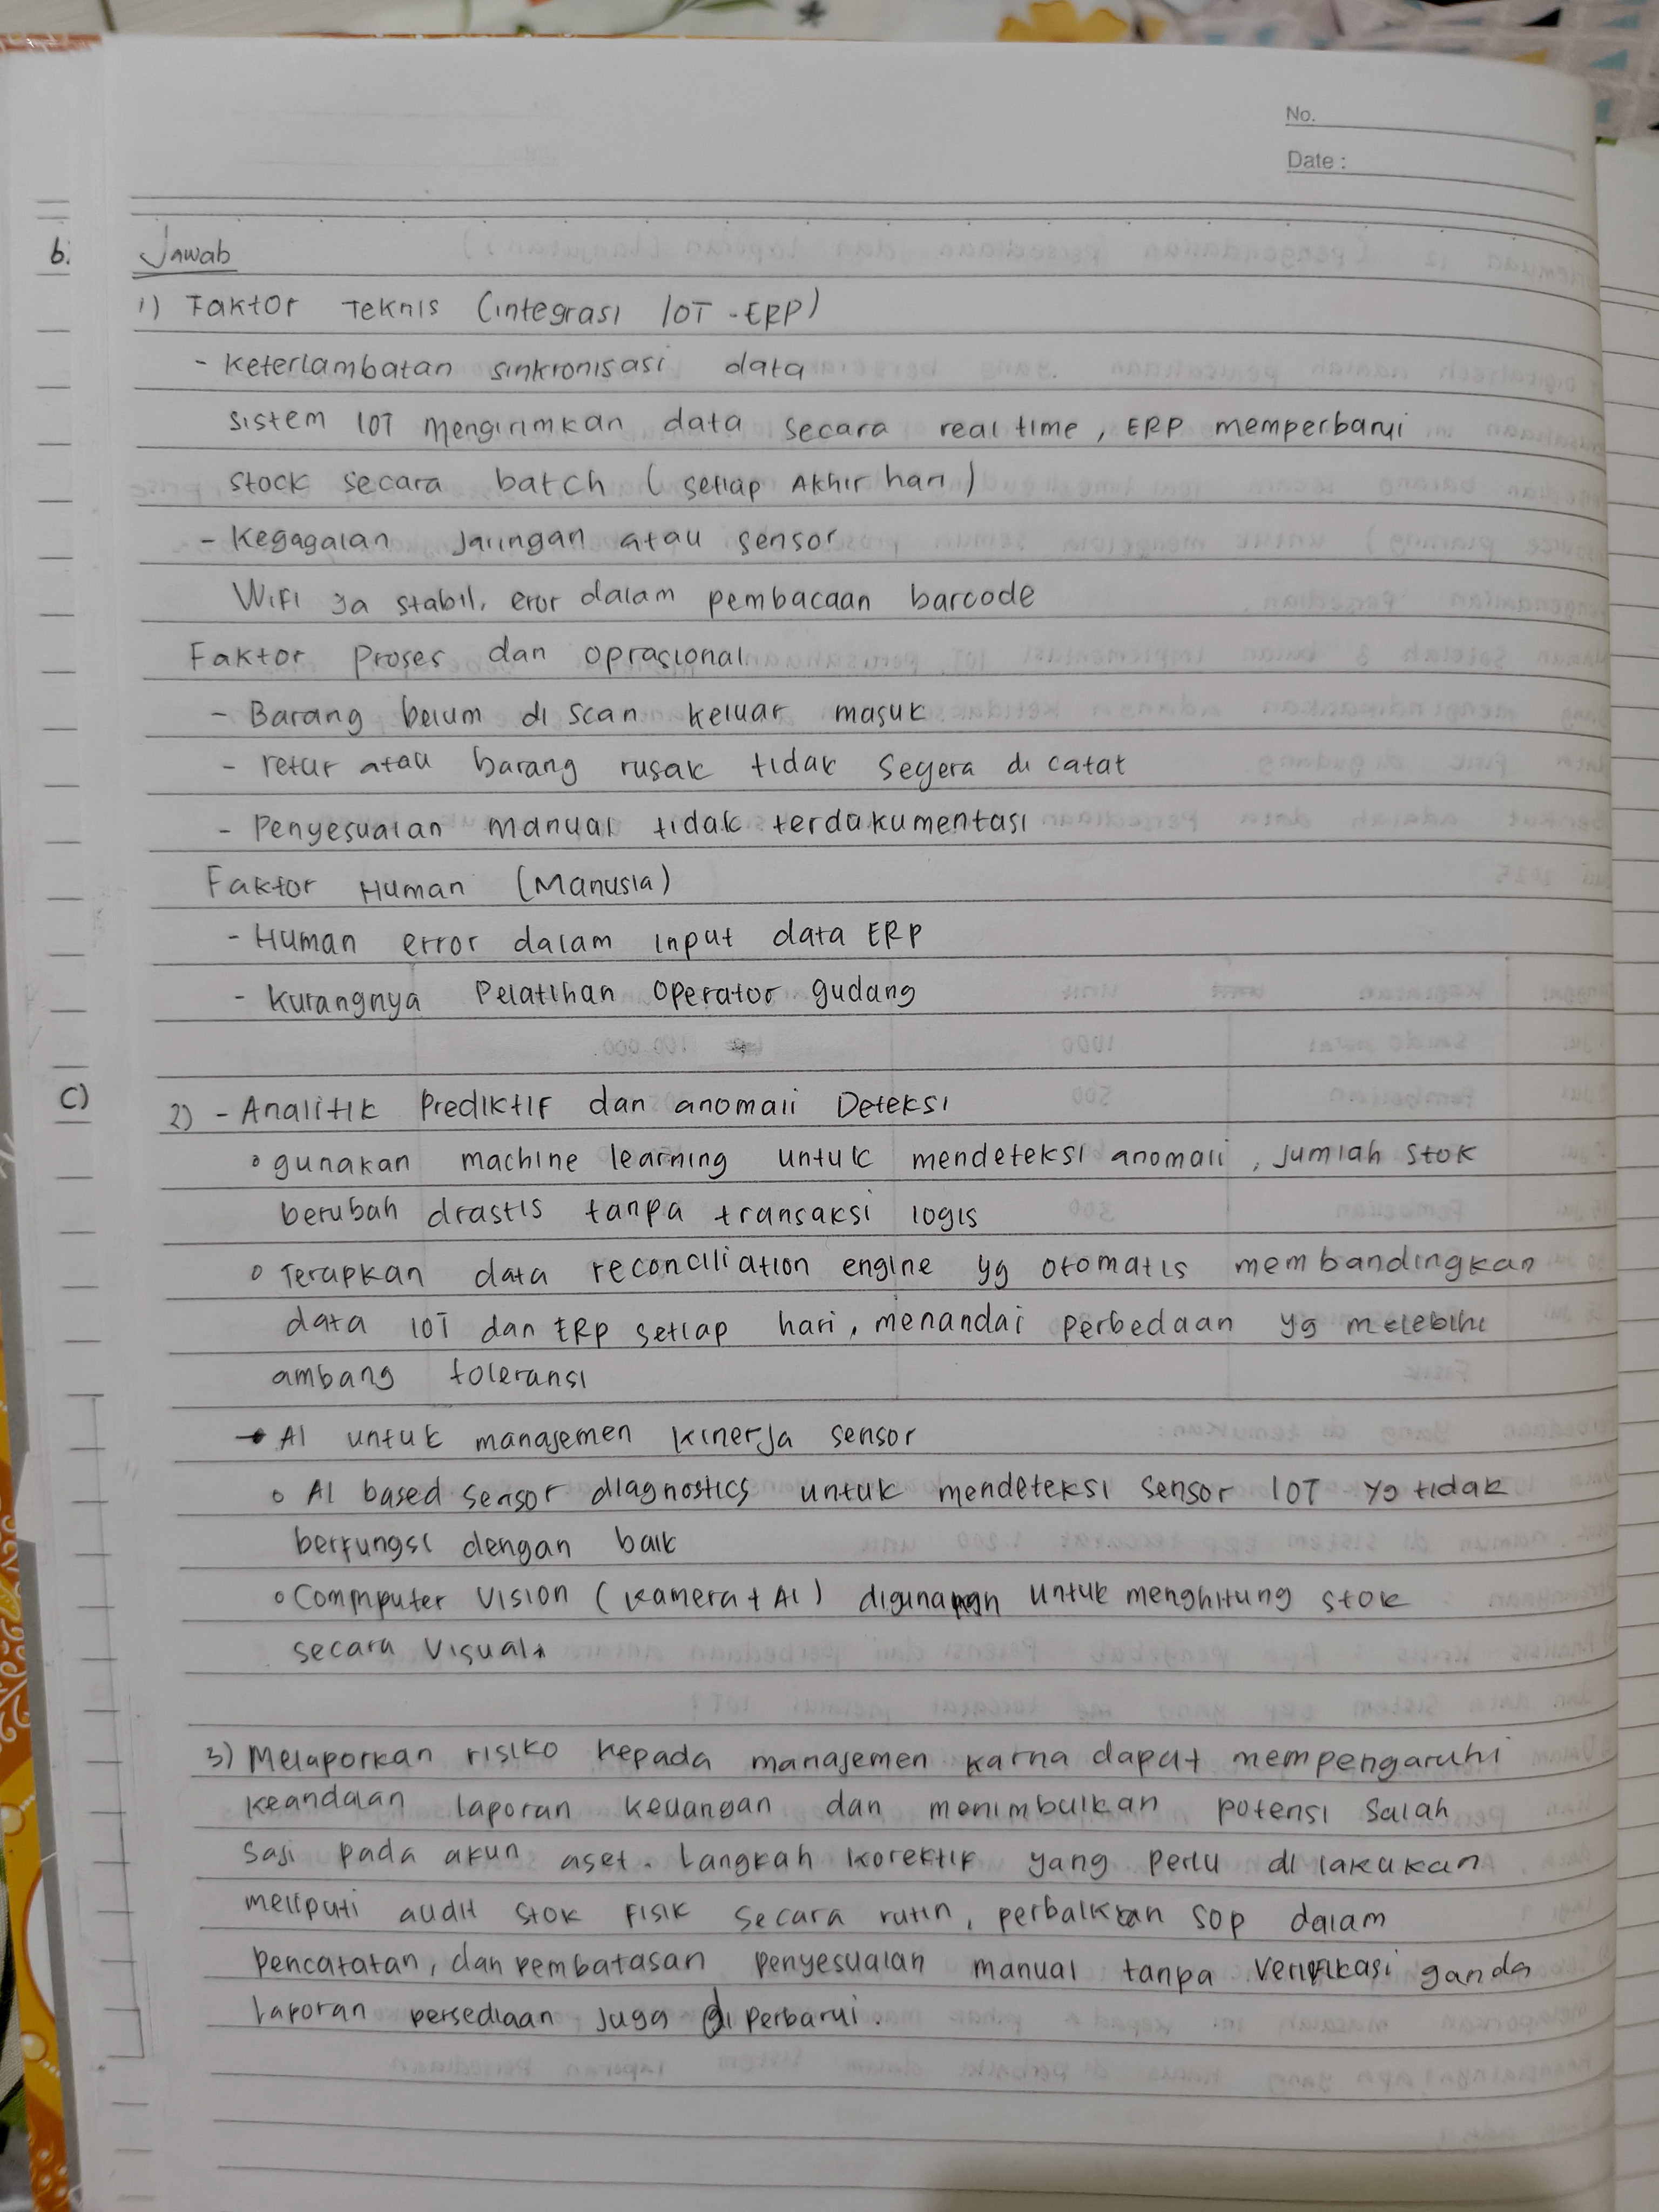 No.
Date :
b.
Jawab
1) Faktor Teknis (integrasi IOT - ERP)
- Keterlambatan sinkronisasi data
sistem IOT mengirimkan data secara real time, ERP memperbarui
stock secara batch (setiap Akhir hari)
- Kegagalan jaringan atau sensor
WiFi ga stabil, eror dalam pembacaan barcode
Faktor Proses dan oprasional
- Barang belum di scan keluar masuk
- retur atau barang rusak tidak segera di catat
- Penyesuaian manual tidak terdakumentasi
Faktor Human (Manusia)
- Human error dalam input data ERP
- Kurangnya Pelatihan operator gudang
c)
2) - Analitik Prediktif dan anomali Deteksi
° gunakan machine learning untuk mendeteksi anomali, jumlah stok
berubah drastis tanpa transaksi logis
° Terapkan data reconciliation engine yg otomatis membandingkan
data IOT dan ERP setiap hari, menandai perbedaan yg melebihi
ambang toleransi
- AI untuk manajemen kinerja sensor
° AI based sensor diagnostics untuk mendeteksi sensor IOT yg tidak
berfungsi dengan baik
° Commputer vision (kamera + AI) digunakan untuk menghitung stok
secara visual.
3) Melaporkan risiko kepada manajemen karna dapat mempengaruhi
keandalan laporan keuangan dan menimbulkan potensi salah
saji pada akun aset. Langkah korektif yang perlu di lakukan
meliputi audit stok fisik secara rutin, perbaikan SOP dalam
pencatatan, dan pembatasan penyesuaian manual tanpa verifikasi ganda
laporan persediaan juga di perbarui.